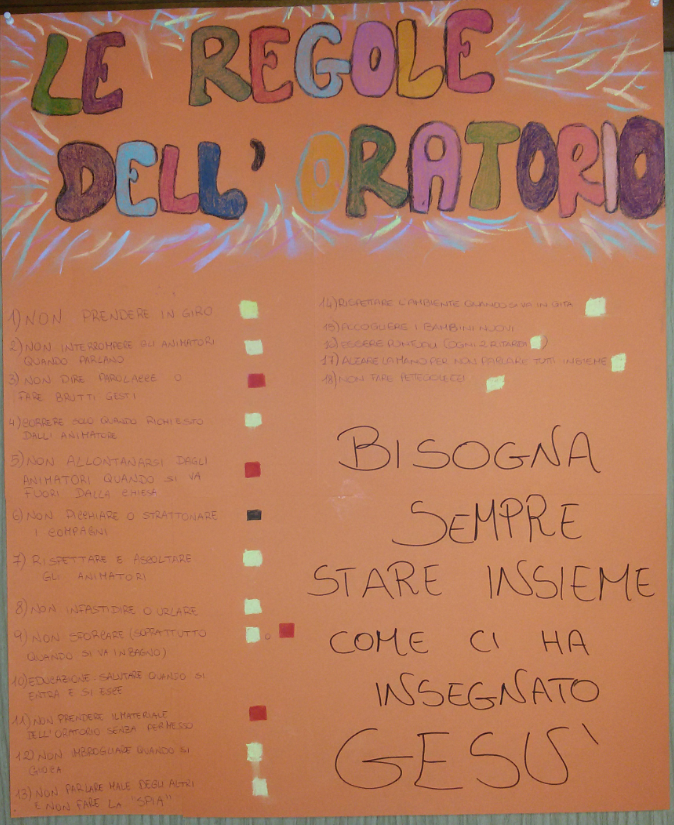 LE REGOLE
DELL' ORATORIO
1) NON PRENDERE IN GIRO
2) NON INTERROMPERE GLI ANIMATORI
QUANDO PARLANO
3) NON DIRE PAROLACCE O
FARE BRUTTI GESTI
4) CORRERE SOLO QUANDO RICHIESTO
DALL' ANIMATORE
5) NON ALLONTANARSI DAGLI
ANIMATORI QUANDO SI VA
FUORI DALLA CHIESA
6) NON PICCHIARE O STRATTONARE
I COMPAGNI
7) RISPETTARE E ASCOLTARE
GLI ANIMATORI
8) NON INFASTIDIRE O URLARE
9) NON SPORCARE (SOPRATTUTTO
QUANDO SI VA IN BAGNO)
o
10) EDUCAZIONE: SALUTARE QUANDO SI
ENTRA E SI ESCE
11) NON PRENDERE IL MATERIALE
DELL'ORATORIO SENZA PERMESSO
12) NON IMBROGLIARE QUANDO SI
GIOCA
13) NON PARLARE MALE DEGLI ALTRI
E NON FARE LA "SPIA"
14) RISPETTARE L'AMBIENTE QUANDO SI VA IN GITA
15) ACCOGLIERE I BAMBINI NUOVI
16) ESSERE PUNTUALI (OGNI 2 RITARDI )
17) ALZARE LA MANO PER NON PARLARE TUTTI INSIEME
18) NON FARE PETTEGOLEZZI
BISOGNA
SEMPRE
STARE INSIEME
COME CI HA
INSEGNATO
GESU'